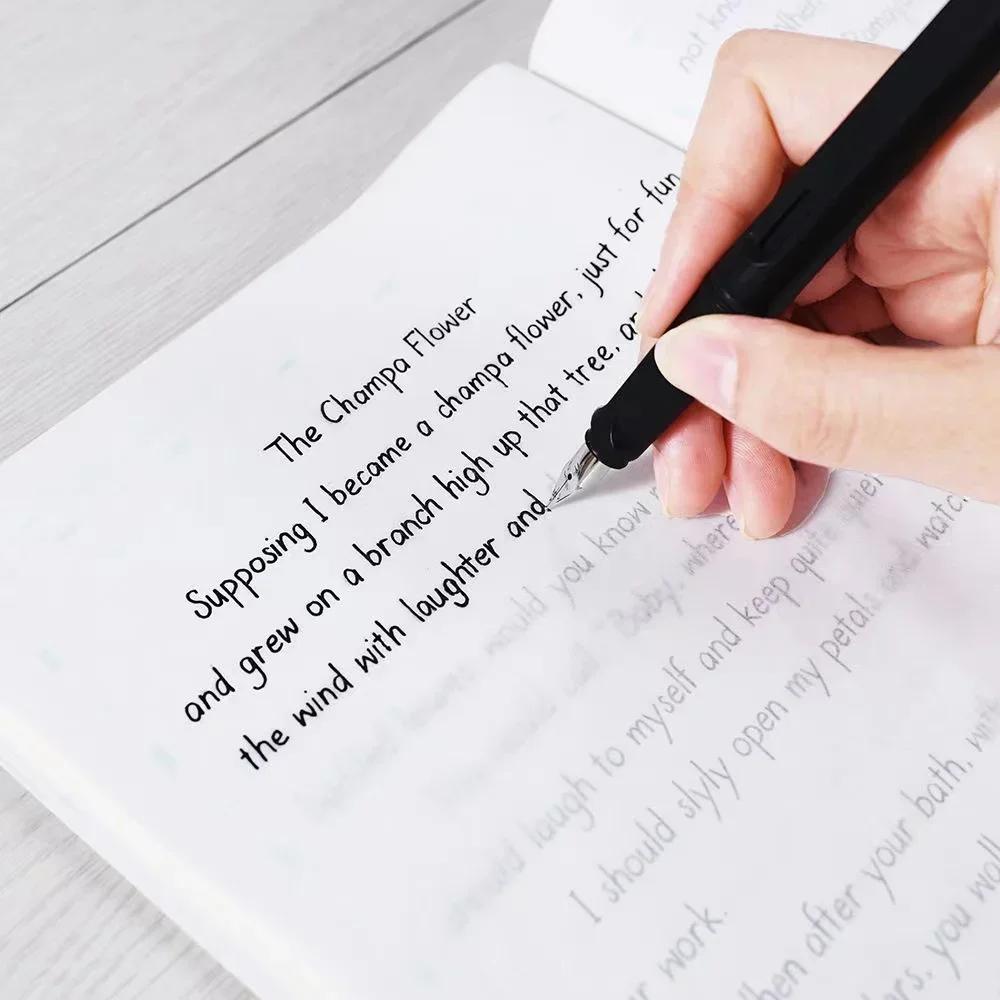 not know
The Champa Flower
Supposing I became a champa flower, just for fun
and grew on a branch high up that tree,
the wind with laughter and
would you know
Baby, where
would laugh to myself and keep quite quiet
I should slyly open my petals and watch
work.
after your bath, with
you walk